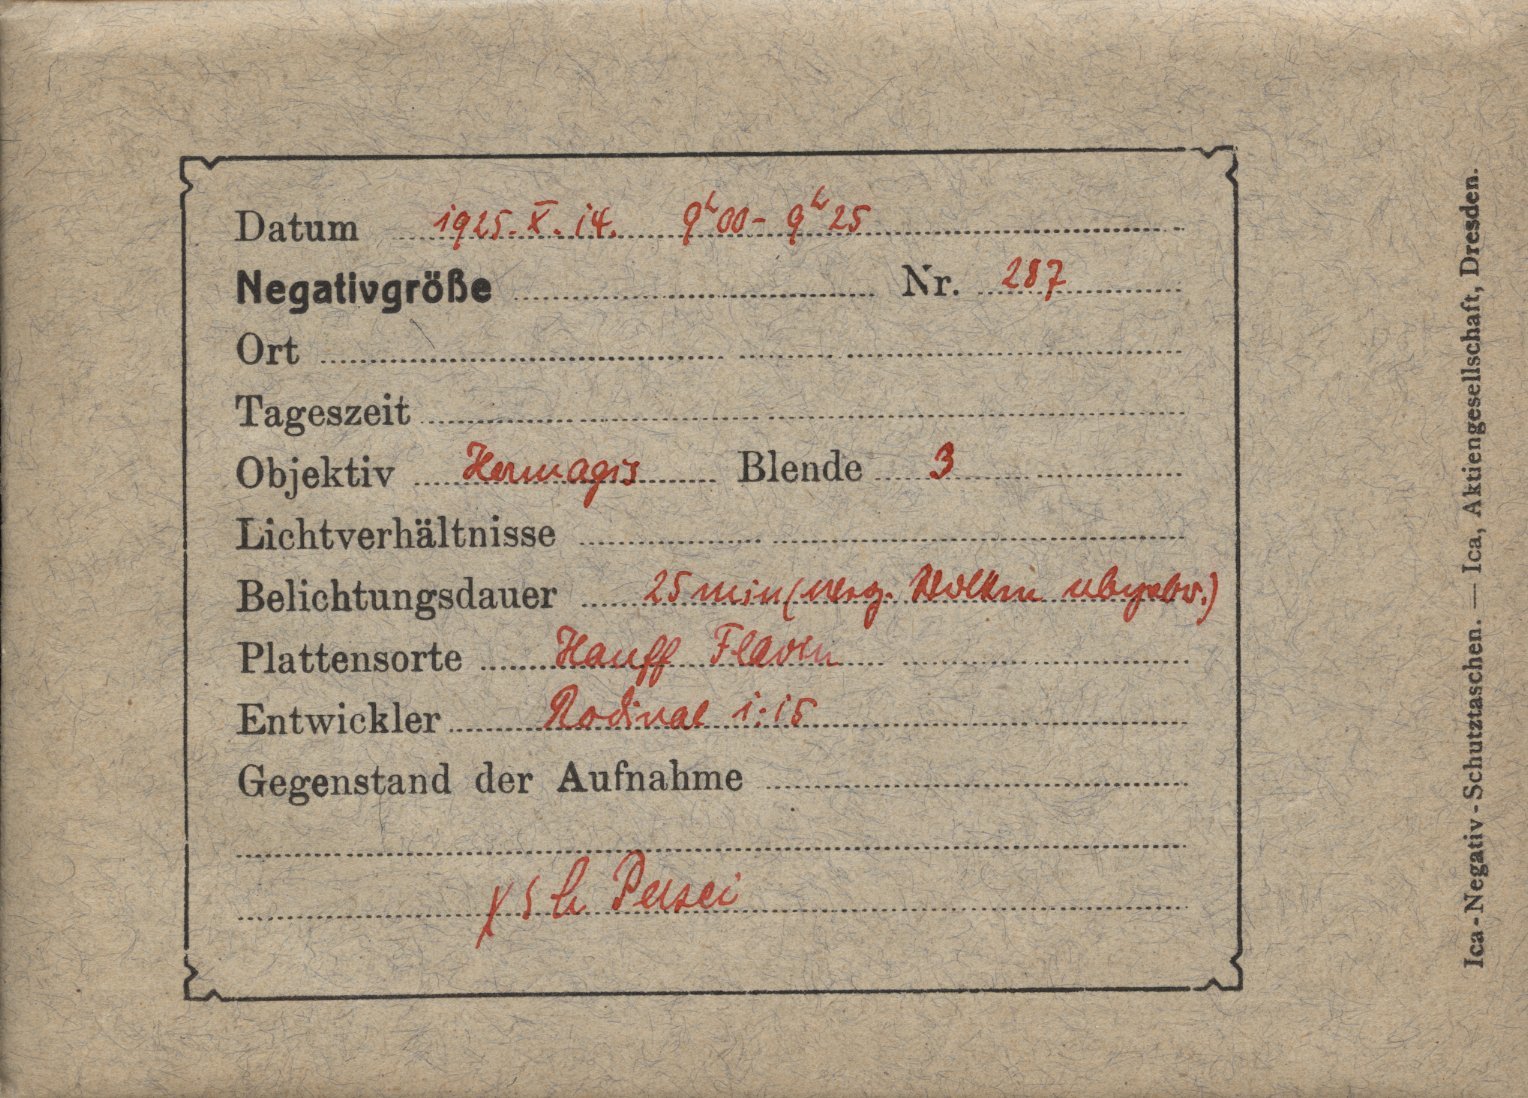 Datum 1925. X. 14. 9h00 - 9h25
Negativgröße Nr. 287
Ort
Tageszeit
Objektiv Hermagis Blende 3
Lichtverhältnisse
Belichtungsdauer 25 min (weg. Wolken abgebr.)
Plattensorte Hauff Flavin
Entwickler Rodinal 1:15
Gegenstand der Aufnahme
h Persei
Ica-Negativ-Schutztaschen. — Ica, Aktiengesellschaft, Dresden.